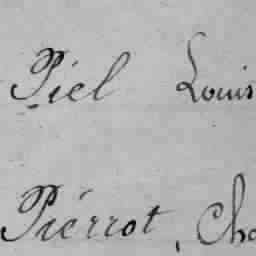 Piel Louis
Piérrot, Cha